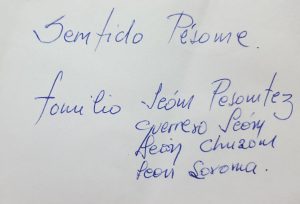 Sentido Pésame.
familia León Pesantez
guerrero León
León Chuzam
León Lozoma.